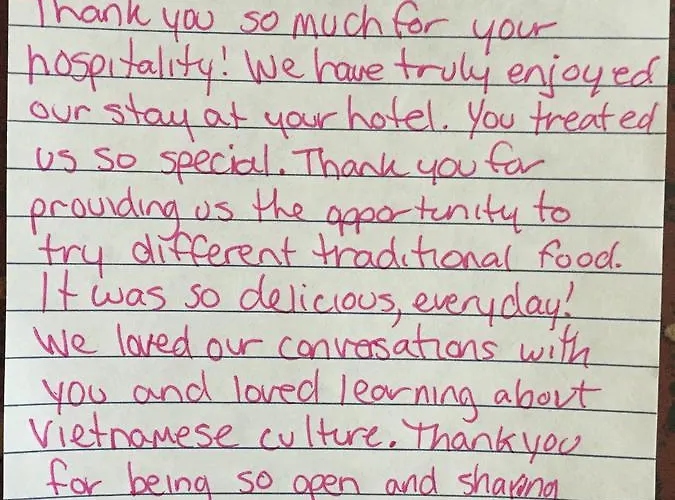 Thank you so much for your
hospitality! We have truly enjoyed
our stay at your hotel. You treated
us so special. Thank you for
providing us the opportunity to
try different traditional food.
It was so delicious, everyday!
We loved our conversations with
you and loved learning about
Vietnamese culture. Thank you
for being so open and sharing